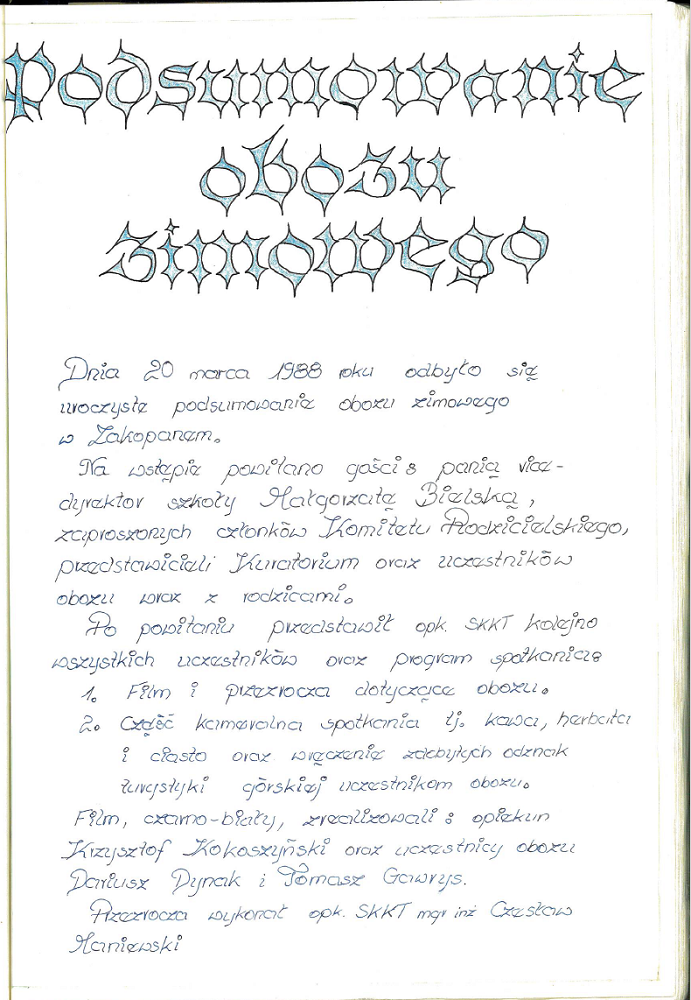 Podsumowanie
obozu
zimowego
Dnia 20 marca 1988 roku odbyło się
uroczyste podsumowanie obozu zimowego
w Zakopanem.
Na wstępie powitano gości: panią vice-
dyrektor szkoły Małgorzatę Bielską,
zaproszonych członków Komitetu Rodzicielskiego,
przedstawicieli Kuratorium oraz uczestników
obozu wraz z rodzicami.
Po powitaniu przedstawił opk. SKKT kolejno
wszystkich uczestników oraz program spotkania:
1. Film i przezrocza dotyczące obozu.
2. Część kameralna spotkania tj. kawa, herbata
i ciasto oraz wręczenie zdobytych odznak
turystyki górskiej uczestnikom obozu.
Film, czarno-biały, zrealizowali: opiekun
Krzysztof Kokoszyński oraz uczestnicy obozu
Dariusz Dynak i Tomasz Gawrys.
Przezrocza wykonał opk. SKKT mgr inż Czesław
Maniewski